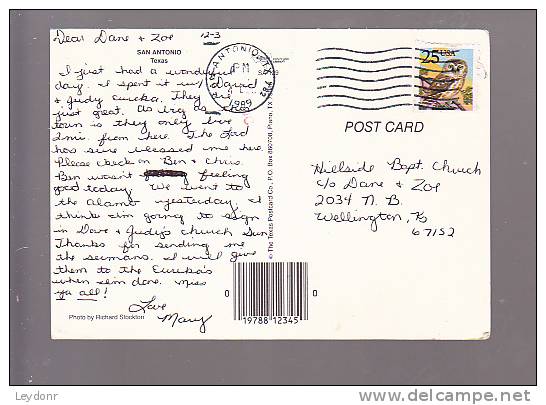 Dear Dane & Zoe
12-3
SAN ANTONIO
Texas
I just had a wonderful
day. I spent it w/ David
& Judy Eureka. They are
just great. As big as this
town is they only live
2 mi. from here. The Lord
has sure blessed me here.
Please check on Ben & Chris.
Ben wasn't feeling
good today. We went to
the Alamo yesterday. I
think I'm going to sign
in Dave & Judy's church Sun.
Thanks for sending me
the sermans. I will give
them to the Eureka's
when I'm done. Miss
ya all!
Love
Mary
Photo by Richard Stockton
© The Texas Postcard Co., P.O. Box 860708, Plano, TX
SAN ANTONIO, TX
PM
1989
25 USA
POST CARD
Hillside Bapt. Church
c/o Dane & Zoe
2034 N. B.
Wellington, Ks
67152
0 0
19788 12345
Leydonr
delcampe.net